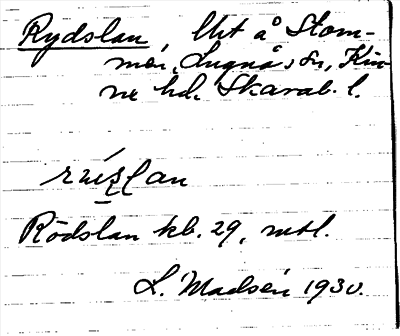 Rydslan Utt å Stom-
men, Lugnås sn, Kin-
ne hd. Skarab. l.
Rödslan kb. 29, mtl.
L. Madsén 1930.